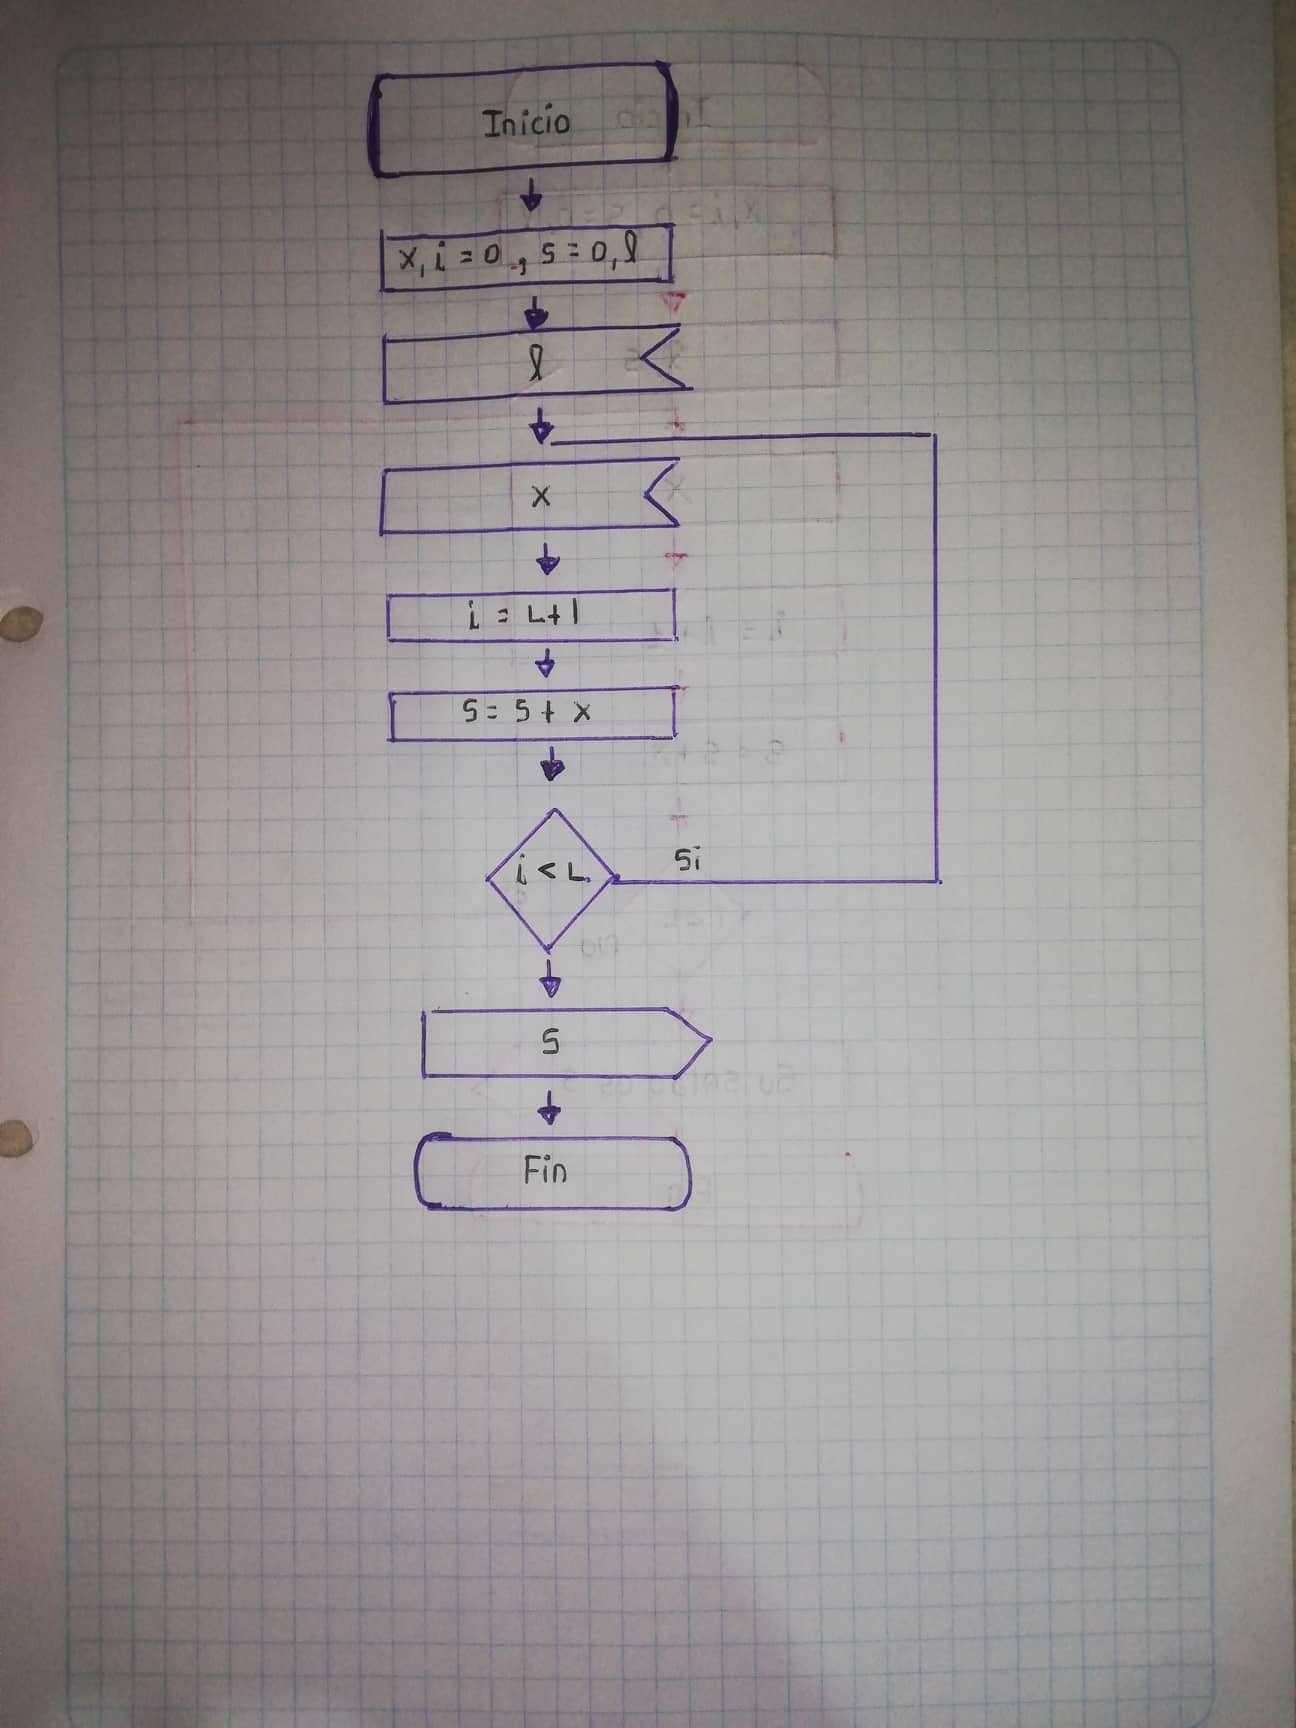 Inicio
x, i = 0, s = 0, l
l
x
i = L+1
S = S + x
i < L
Si
S
Fin